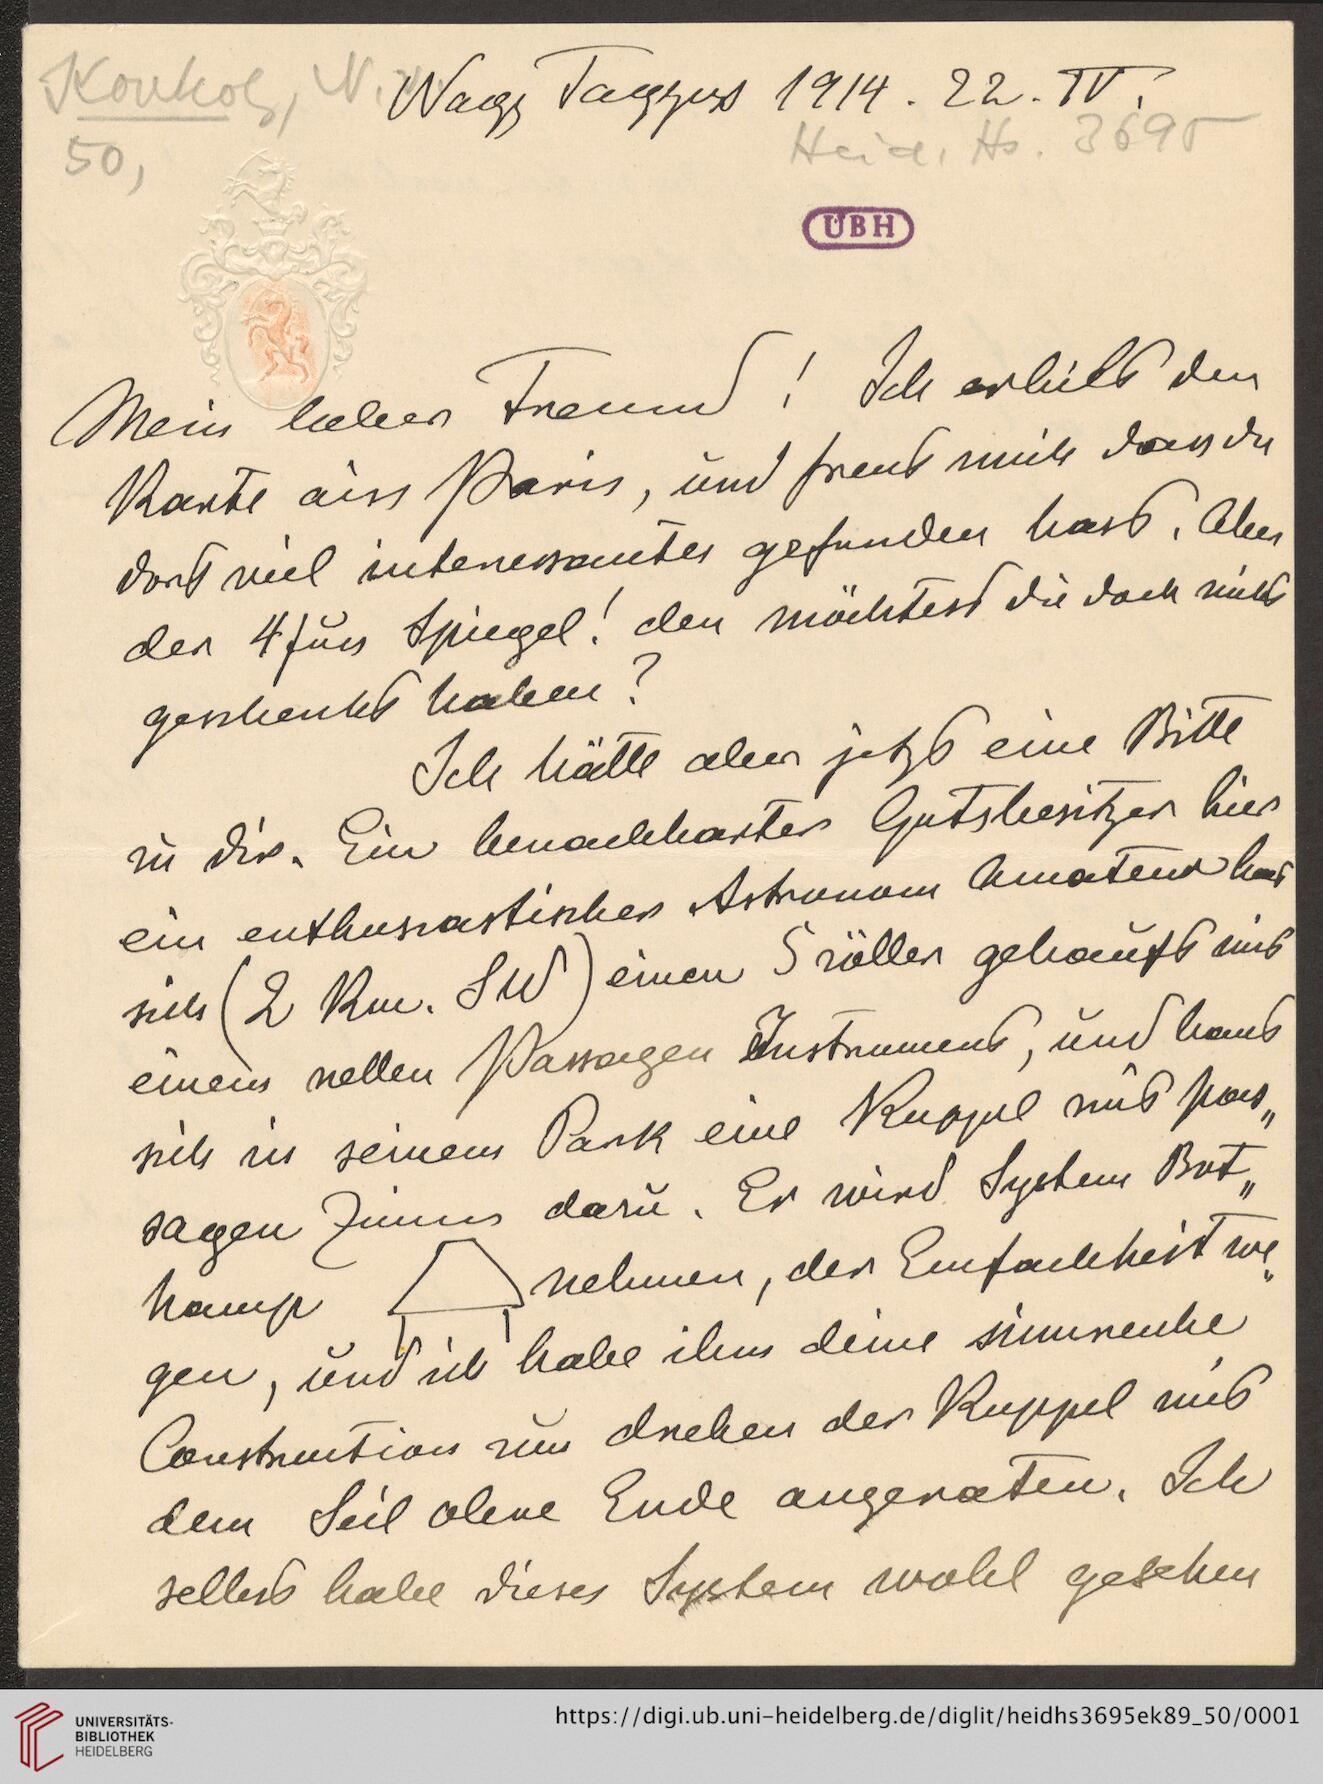 Konkoly, N. v.
Nagy Tagyos 1914. 22. IV.
50,
Heid. Hs. 3695
UBH
Mein lieber Freund! Ich erhielt den
Karte aus Paris, und freut mich dass du
dort viel interessantes gefunden hast. Aber
der 4 fuss Spiegel! den möchtest du doch nicht
geschenkt haben?
Ich hätte aber jetzt eine Bitte
zu dir. Ein benachbarter Gutsbesitzer hier
ein enthusiastischer Astronom Amateur hat
sich (2 Km. SW) einen 5 zöller gekauft mit
einem netten Passagen Instrument, und baut
sich in seinem Park eine Kuppel mit pas„
sagen Zimmer dazu. Er wird System Bot„
kamp nehmen, der Einfachheit we„
gen, und ich habe ihm deine sinnreiche
Construction zum drehen der Kuppel mit
dem Seil ohne Ende angeraten. Ich
selbst habe dieses System wohl gesehen
UNIVERSITÄTS-
BIBLIOTHEK
HEIDELBERG
https://digi.ub.uni-heidelberg.de/diglit/heidhs3695ek89_50/0001